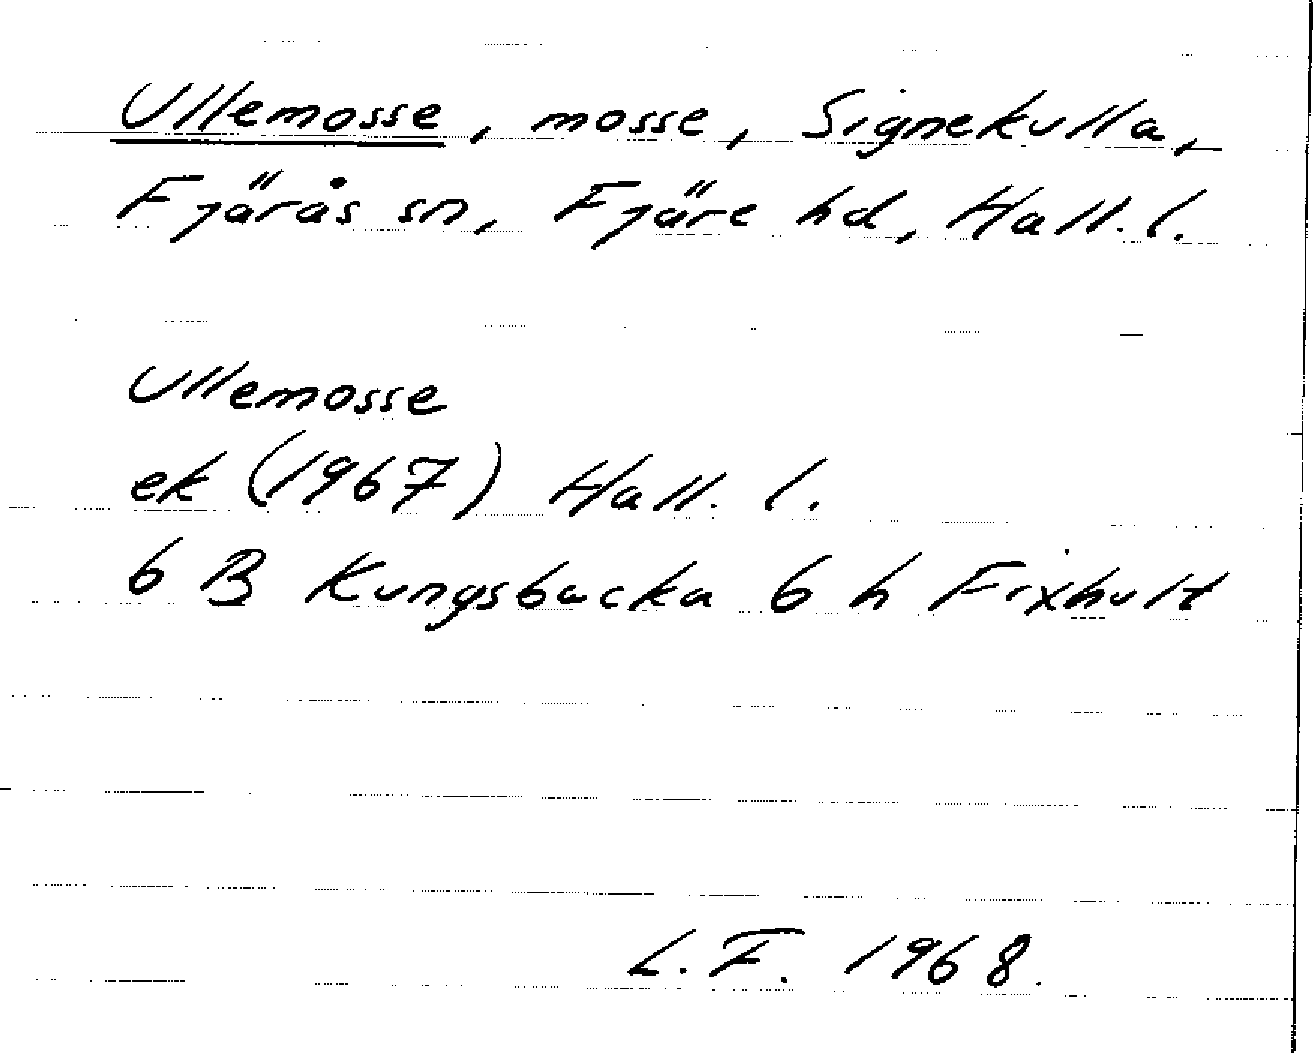 Ullemosse, mosse, Signekulla,
Fjärås sn, Fjäre hd, Hall. l.
Ullemosse
ek (1967) Hall. l.
6 B Kungsbacka 6 h Fixhult
L. F. 1968.